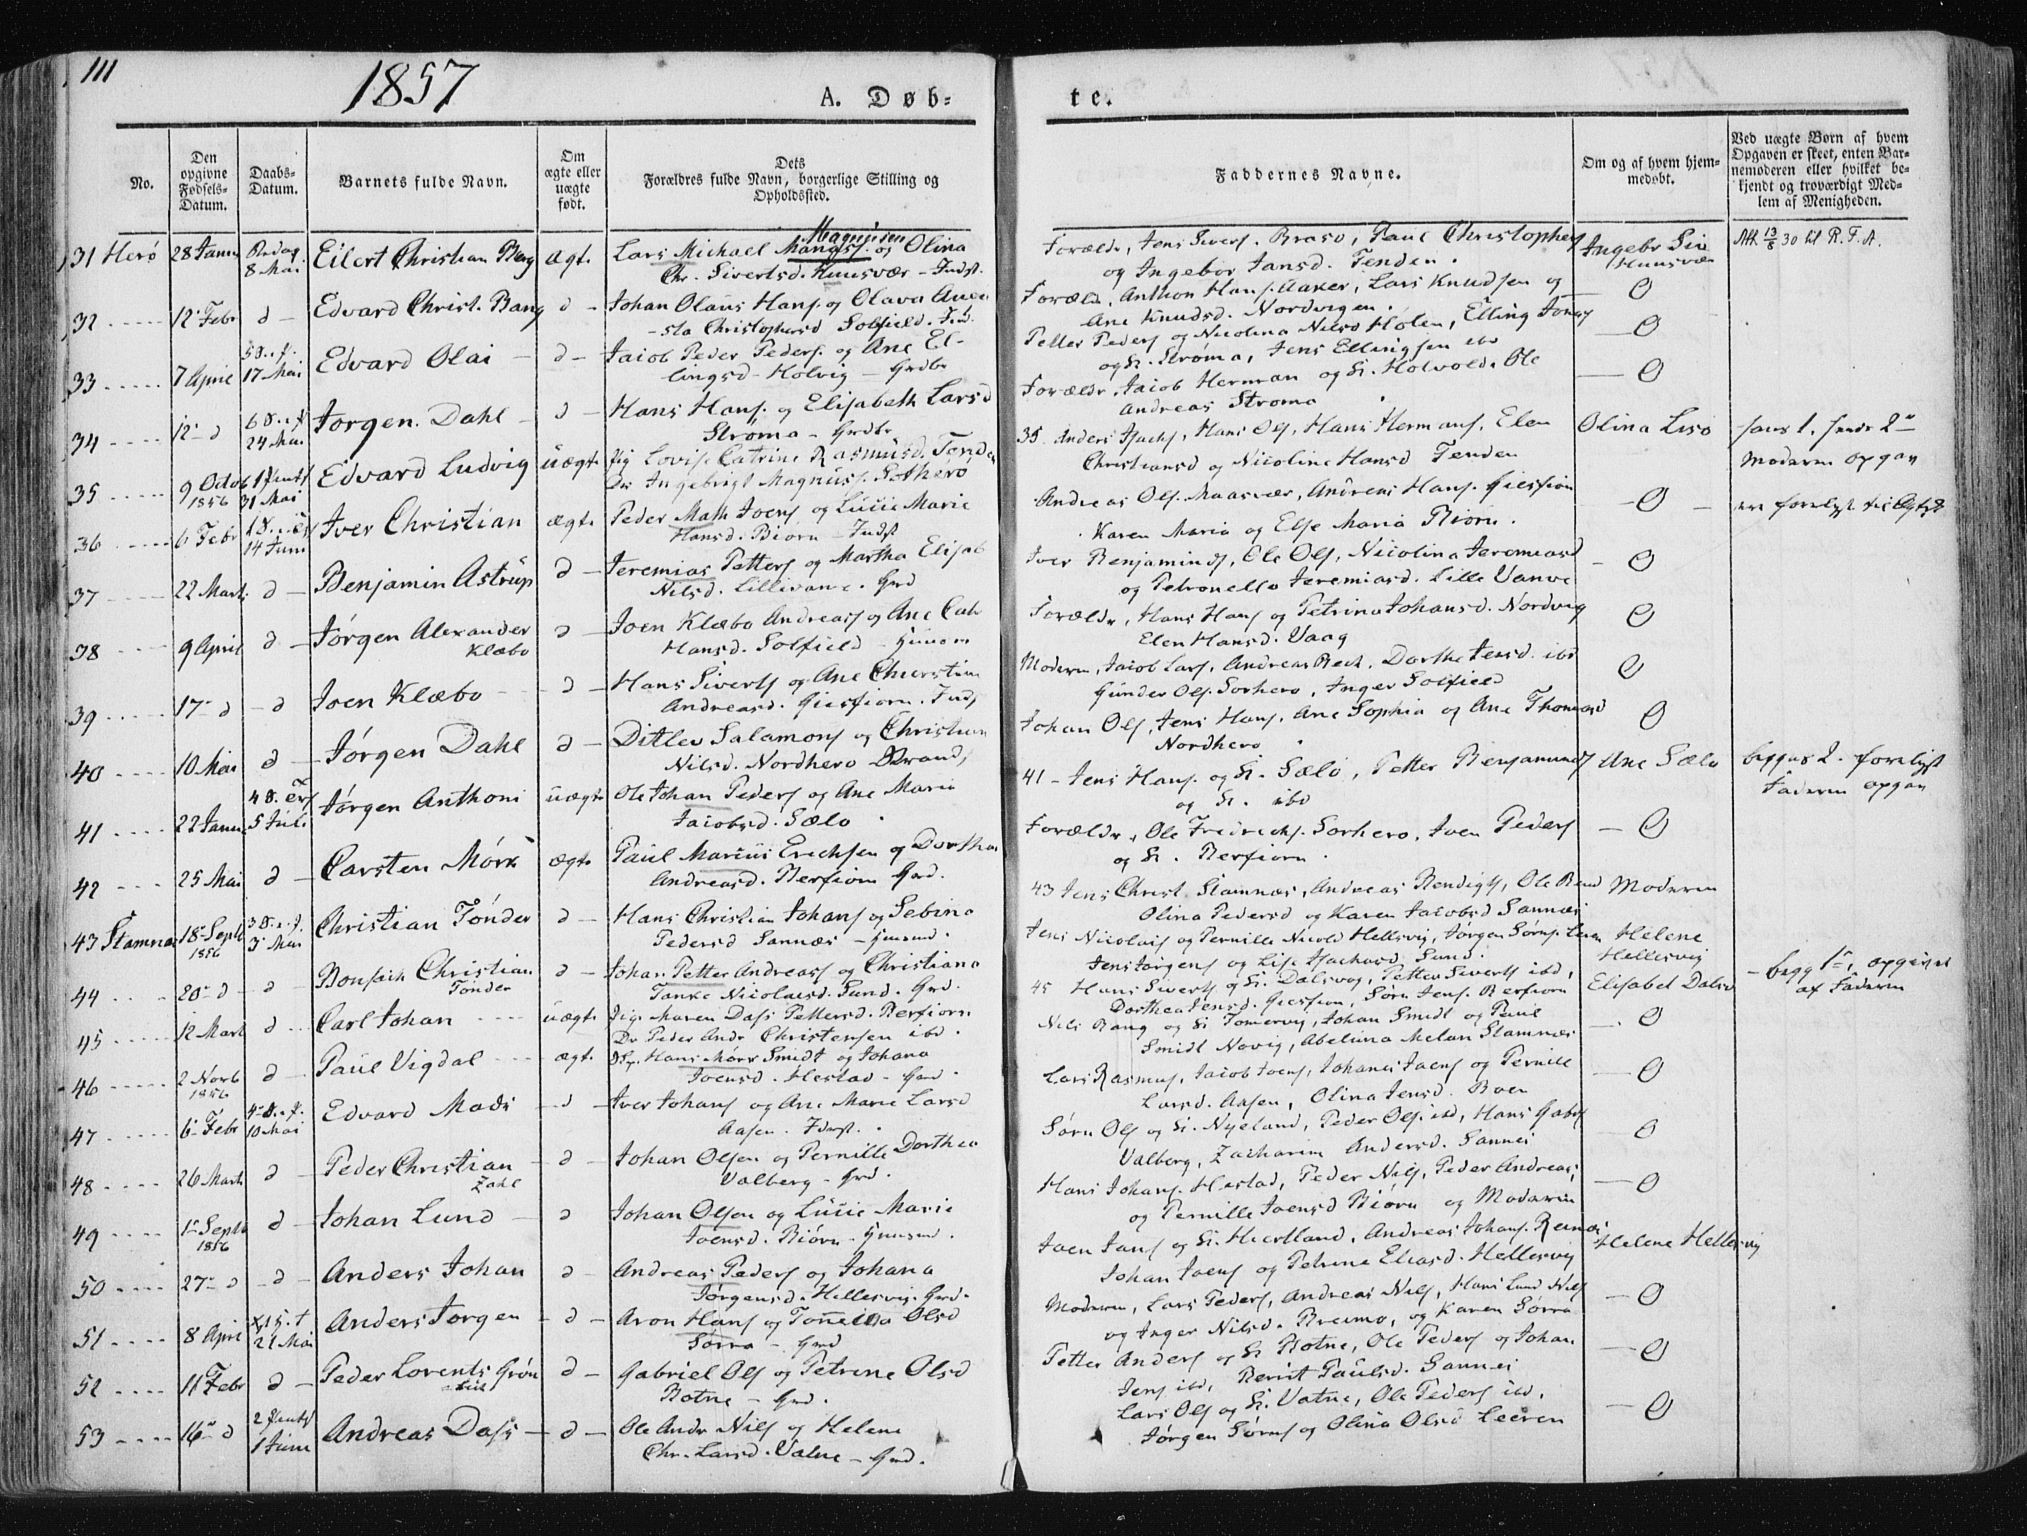 111
1857
A. Døb-
te.
No.
Den
opgivne
Fødsels-
Datum.
Daabs-
Datum.
Barnets fulde Navn.
Om
ægte eller
uægte
født.
Dets
Forældres fulde Navn, borgerlige Stilling og
Opholdssted.
Faddernes Navne.
Om og af hvem hjem-
medøbt.
Ved uægte Børn af hvem
Opgaven er skeet, enten Bar-
nemoderen eller hvilket be-
kjendt og troværdigt Med-
lem af Menigheden.
31 Herø 28 Janu 8 Mai Eilert Christian Berg ægt.
Magnusen
Lars Michael Mangs. og Olina
Chr. Sivertsd. Huusvær - Indst.
Forældr, Jens Sivers. Brasø, Paul Christophers
og Ingebor Jansd. Tenden.
Ingebr Siv
Huusvær
Att. 13/5 30 til R. T. A.
32 12 Febr d - Edvard Christ. Bang d -
Johan Olaus Hans. og Olava Aue
sta Christophersd Solfield. Ind.
Forældr, Anthon Hans. Aaker, Lars Knudsen og
Ane Knudsd. Nordvigen
O
33 7 April 17 Mai Edvard Olai - d -
Jacob Peder Peders. og Ane El-
lingsd - Holvig - Grdbr
Petter Peders og Nicolina Nilsd Holen, Elling Jonas
og H. Strøma, Jens Ellingsen ibd
O
34 12 d 24 Mai Jørgen Dahl - d -
Hans Hans. og Elisabeth Larsd
Strøma - Grdbr
Forældr, Jacob Herman og H. Holvold, Ole
Andreas Strøma
O
35 9 Octob 1856 31 Mai Edvard Ludvig uægt.
Pig Lovise Catrine Rasmusd. Tenden
Dr Ingebrigt Magnus. Sørherø
35. Anders Isachs, Hans Ols, Hans Hermans, Elen
Christiansd og Nicoline Hansd Tenden
Olina Lisø
hans 1. hendes 2
Moderen opgav
36 6 Febr 14 Juni Iver Christian ægt.
Peder Math Joens og Lucie Marie
Hansd. Biørn - Indst
Andreas Ols. Maasvær, Andreas Hans. Giesfion
Karen Maria og Else Maria Biørn.
O
37 22 Marts d - Benjamin Astrup d -
Jeremias Petters og Martha Elisab
Nilsd. Lillivanve. Grd
Iver Benjamins, Ole Ols, Nicolina Jeremiasd
og Petronella Jeremiasd. Lille Vanve
O
38 9 April d - Jørgen Alexander
Klæbo d
Joen Klæbo Andreass og Ane Cat
Hansd. Solfield - Huusm
Forældr, Hans Hans og Petrina Johansd. Nordvig
Elen Hansd. Vaag
O
39 17 d - d Joen Klæbo - d -
Hans Siverts og Ane Chierstine
Andreasd. Giesfiorn. Inds
Moderen, Jacob Lars, Andreas Bech, Dorthe Jensd. ibd
Gunder Ols. Sørherø, Inger Solfield
O
40 10 Mai d - Jørgen Dahl d -
Ditlev Salamons og Christian
Nilsd. Nordherø Strands
Johan Ols, Jens Hans, Ane Sophia og Ane Thomasd
Nordherø
O
41 22 Janu 5 Juli Jørgen Anthoni uægt.
Ole Johan Peders og Ane Maria
Jacobsd. Sælø
41 - Jens Hans. og H. Sælø, Petter Benjamins
og H. ibd
Ane Sælø
begges 2. forelyst
Faderen opgav
42 25 Mai d - Carsten Mørk ægt.
Paul Marius Erichsen og Dorthea
Andreasd. Rerfiorn Grd.
Forældr, Ole Fredrichs. Sørherø, Joen Peders
og H. Rerfiorn.
O
43 Stamnæs 18 Septb 1856 3 Mai Christian Tønder d -
Hans Christian Johans og Sebina
Pedersd Sannæs - Huusmd.
43 Jens Christ. Stamnæs, Andreas Bendigts, Ole Bend
Olina Pedersd og Karen Jacobsd Sannæs
Moderen
44 20 d - d - Bonsach Christian
Tønder d -
Johan Petter Andreass og Christiana
Tanke Nicolaisd. Sund. Grd.
Jens Nicolais og Pernille Nicold Hellesvig, Jørgen Sørns. Leeren
Jens Jørgens og Lise Isachsd. Sund.
Helene
Hellesvig
45 12 Mart d - Carl Johan uægt.
Pige Maren Dass Pettersd. Rerfiorn
Dr Peder Andr Christensen ibd.
45 Hans Siverts og H. Dalsvog, Petter Siverts ibd,
Dorthea Jensd. Giesfion, Sørn Jens. Rerfiorn
Elisabet Dalsv
- begg 1te, opgivet
af Faderen
46 2 Novb 1856 d - Paul Vigdal ægt.
Hans Mørk Smidt og Johana
Joensd. Hestad - Grd.
Nils Bang og H. Tømervig, Johan Smidt og Paul
Smidt Novig, Abeluna Melan Stamnæs
O
47 6 Febr 10 Mai Edvard Mads - d
Iver Johans og Ane Marie Larsd
Aasen. Indst.
Lars Rasmus, Jacob Joens, Johanes Joens og Pernill
Larsd. Aasen, Olina Jensd. Boen
O
48 26 Mart d Peder Christian
Zahl - d -
Johan Olsen og Pernille Dorthea
Valberg - Grd.
Sørn Ols og H. Nyeland, Peder Ols. ibd, Hans Gabr
Valberg, Zacharine Andersd. Sannes
O
49 1 Septb 1856 d - Johan Lund - d
Johan Olsen og Lucie Marie
Joensd. Biørn - Huusmd.
Hans Johans. Hestad, Peder Nils, Peder Andreas,
og Pernille Joensd Biørn og Moderen
O
50 27 d - d - Anders Johan d -
Andreas Peders og Johana
Jørgensd. Hellesvig. Grd.
Joen Jans og H. Hiertland, Andreas Johans. Remnes
Johan Joens og Petrine Eliasd. Hellesvig
Helene Hellesvig
51 8 April 21 Mai Anders Jørgen - d -
Aron Hans og Tonnetta Olsd
Sørra - Grd
Moderen, Lars Peders, Andreas Nils, Hans Lund Nils
og Inger Nilsd. Breimo, og Karen Sørra
O
52 11 Febr d - Peder Lorents Grøn d -
Gabriel Ols og Petrine Olsd
Botne - Grd.
Petter Anders og H Botne, Ole Peders og Johan
Jens ibd, Berit Paulsd. Sannes
O
53 16 d 1 Juni Andreas Dass - d -
Ole Andr Nils og Helene
Chr. Larsd. Valne - Grd.
Lars Ols og H. Vatne, Ole Peders ibd,
Jørgen Sørns og Olina Olsd Leeren
O